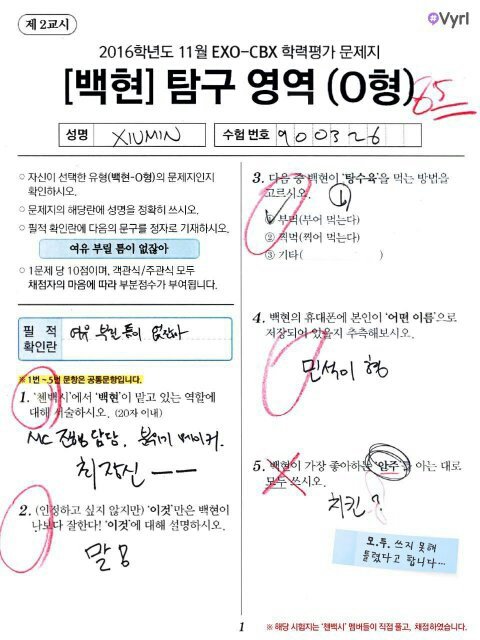 제 2교시
Vyrl
2016학년도 11월 EXO-CBX 학력평가 문제지
[백현] 탐구 영역 (O형)
65
성명 XIUMIN 수험 번호 900326
○ 자신이 선택한 유형(백현-O형)의 문제지인지
확인하시오.
○ 문제지의 해당란에 성명을 정확히 쓰시오.
○ 필적 확인란에 다음의 문구를 정자로 기재하시오.
여유 부릴 틈이 없잖아
○ 1문제 당 10점이며, 객관식/주관식 모두
채점자의 마음에 따라 부분점수가 부여됩니다.
필 적
확인란
여유 부릴 틈이 없잖아
※ 1번 ~ 5번 문항은 공통문항입니다.
1. '첸백시'에서 '백현'이 맡고 있는 역할에
대해 서술하시오. (20자 이내)
MC 진행 담당, 분위기 메이커.
최장신 ㅡㅡ
2. (인정하고 싶지 않지만) '이것'만은 백현이
나보다 잘한다! '이것'에 대해 설명하시오.
말빨
3. 다음 중 백현이 '탕수육'을 먹는 방법을
고르시오.
①
① 부먹(부어 먹는다)
② 찍먹(찍어 먹는다)
③ 기타( )
4. 백현의 휴대폰에 본인이 '어떤 이름'으로
저장되어 있을지 추측해보시오.
민석이 형
5. 백현이 가장 좋아하는 '안주'를 아는 대로
모두 쓰시오.
치킨?
모.두. 쓰지 못해
틀렸다고 합니다…
1
※ 해당 시험지는 '첸백시' 멤버들이 직접 풀고, 채점하였습니다.